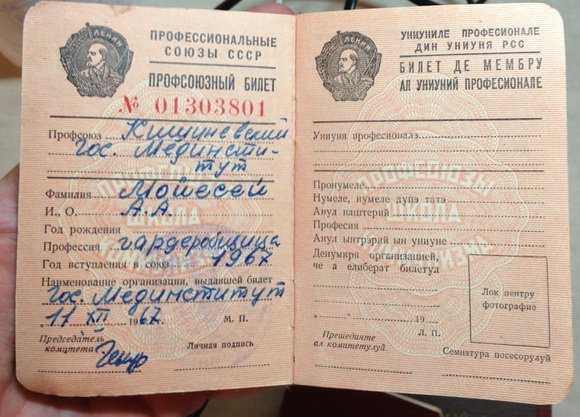 ЛЕНИН
ПРОФЕССИОНАЛЬНЫЕ
СОЮЗЫ СССР
ПРОФСОЮЗНЫЙ БИЛЕТ
№ 01303801
Профсоюз Кишиневский
Гос. Мединсти-
тут
Фамилия Мойсей
И., О. А.А.
Год рождения
Профессия гардеробщица
Год вступления в союз 1967
Наименование организации, выдавшей билет
Гос. Мединститут
11 XII 1967 г. М. П.
Председатель
комитета
Личная подпись
ПРОФСОЮЗЫ
ШКОЛА
КОММУНИЗМА
ЛЕНИН
УНИУНИЛЕ ПРОФЕСИОНАЛЕ
ДИН УНИУНЯ РСС
БИЛЕТ ДЕ МЕМБРУ
АЛ УНИУНИЙ ПРОФЕСИОНАЛЕ
Униуня професионалэ
Пронумеле
Нумеле, нумеле дупэ татэ
Анул наштерий
Професия
Анул интрэрий ын униуне
Денумиря организацией,
че а елиберат билетул
19
Л. П.
Прешединте
ал комитетулуй
Лок пентру
фотографие
Семнэтура посесорулуй
ПРОФСОЮЗЫ
ШКОЛА
КОММУНИЗМА